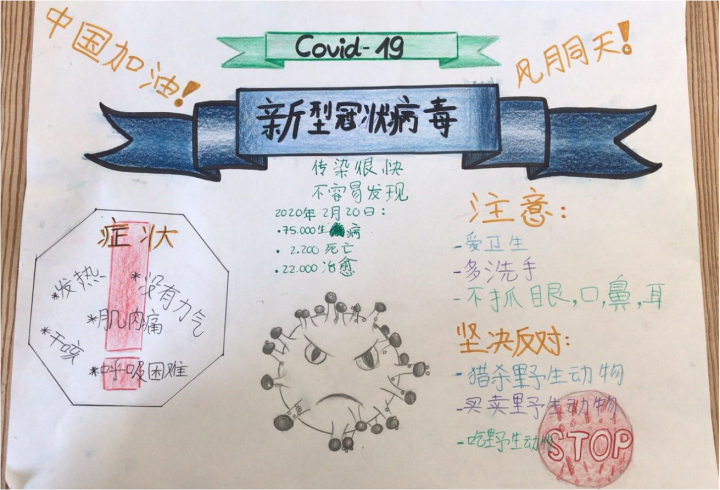 中国加油!
Covid-19
风月同天!
新型冠状病毒
传染很快
不容易发现
2020年2月20日:
•75.000生病
•2.200 死亡
•22.000 治愈
症状
*发热
*没有力气
*肌肉痛
*干咳
*呼吸困难
注意:
-爱卫生
-多洗手
-不抓眼,口,鼻,耳
坚决反对:
-猎杀野生动物
-买卖野生动物
-吃野生动物
STOP